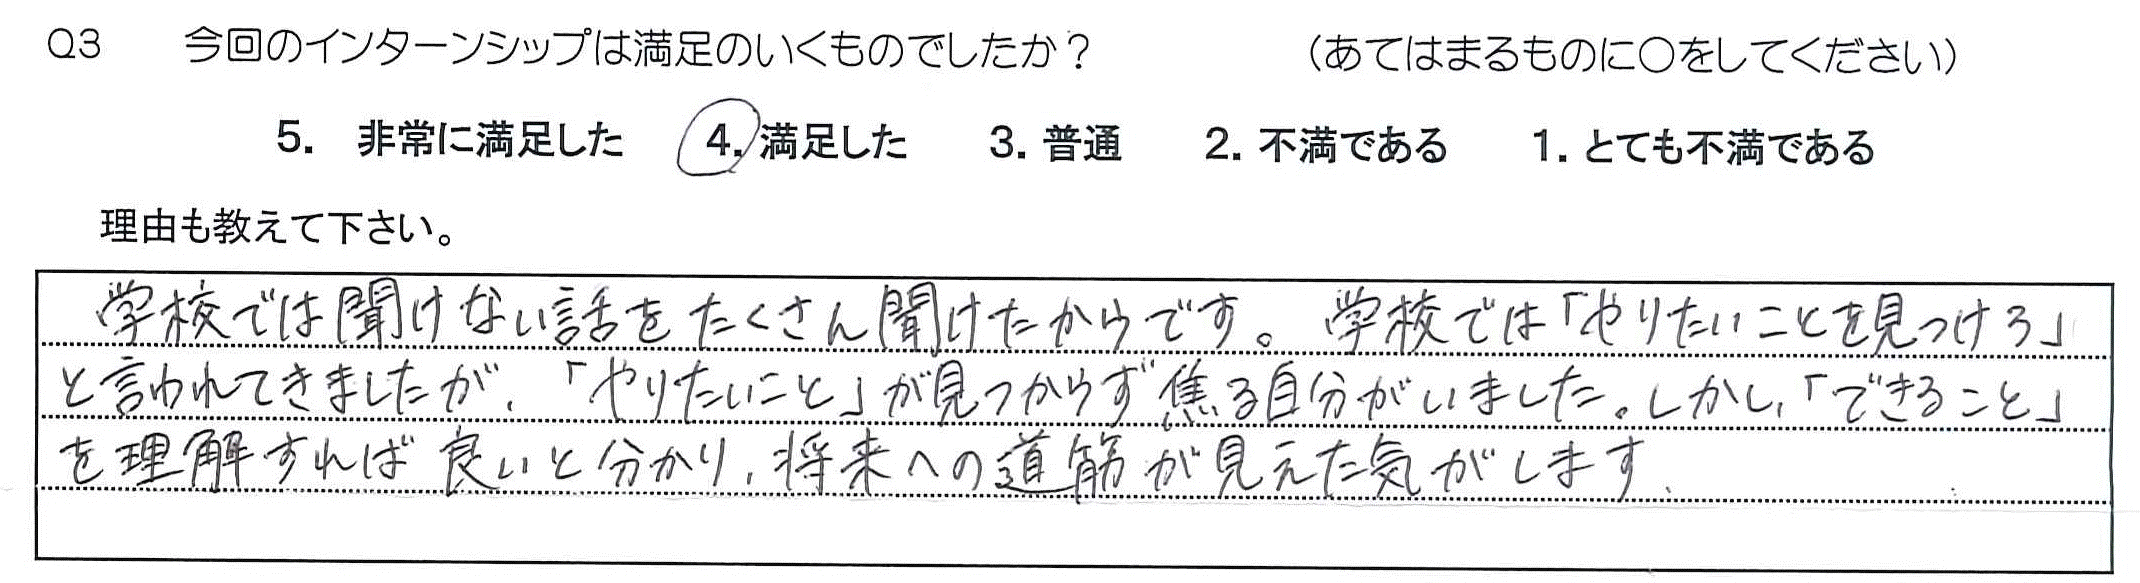 Q3 今回のインターンシップは満足のいくものでしたか？ （あてはまるものに○をしてください）
5. 非常に満足した 4. 満足した 3. 普通 2. 不満である 1. とても不満である
理由も教えて下さい。
学校では聞けない話をたくさん聞けたからです。学校では「やりたいことを見つけろ」
と言われてきましたが、「やりたいこと」が見つからず焦る自分がいました。しかし、「できること」
を理解すれば良いと分かり、将来への道筋が見えた気がします。